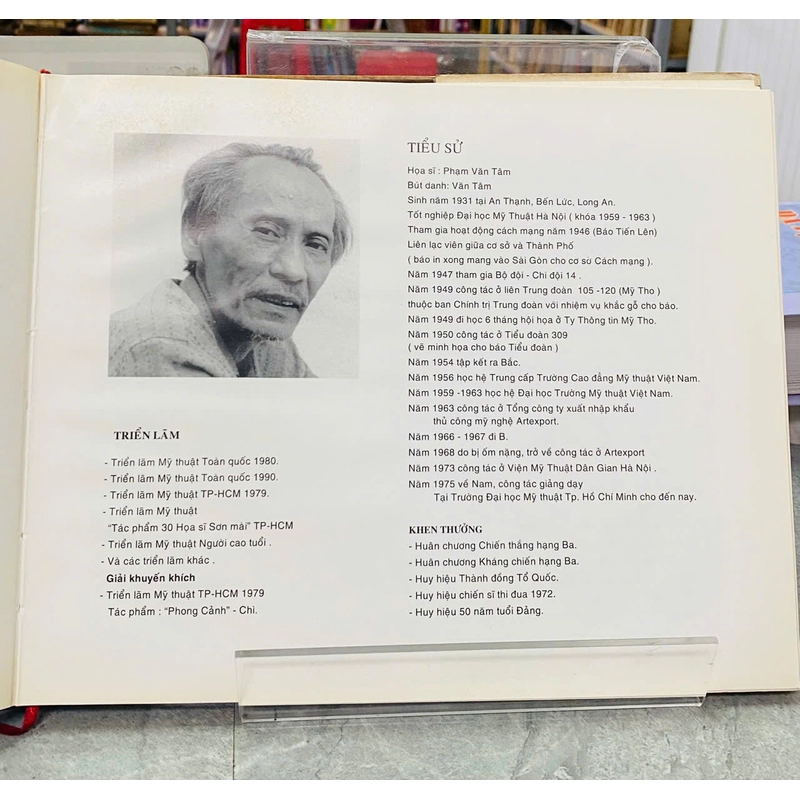 TIỂU SỬ
Họa sĩ : Phạm Văn Tâm
Bút danh: Văn Tâm
Sinh năm 1931 tại An Thạnh, Bến Lức, Long An.
Tốt nghiệp Đại học Mỹ Thuật Hà Nội ( khóa 1959 - 1963 )
Tham gia hoạt động cách mạng năm 1946 (Báo Tiến Lên)
Liên lạc viên giữa cơ sở và Thành Phố
( báo in xong mang vào Sài Gòn cho cơ sở Cách mạng ).
Năm 1947 tham gia Bộ đội - Chi đội 14 .
Năm 1949 công tác ở liên Trung đoàn 105 -120 (Mỹ Tho )
thuộc ban Chính trị Trung đoàn với nhiệm vụ khắc gỗ cho báo.
Năm 1949 đi học 6 tháng hội họa ở Ty Thông tin Mỹ Tho.
Năm 1950 công tác ở Tiểu đoàn 309
( vẽ minh họa cho báo Tiểu đoàn )
Năm 1954 tập kết ra Bắc.
Năm 1956 học hệ Trung cấp Trường Cao đẳng Mỹ thuật Việt Nam.
Năm 1959 -1963 học hệ Đại học Trường Mỹ thuật Việt Nam.
Năm 1963 công tác ở Tổng công ty xuất nhập khẩu
thủ công mỹ nghệ Artexport.
Năm 1966 - 1967 đi B.
Năm 1968 do bị ốm nặng, trở về công tác ở Artexport
Năm 1973 công tác ở Viện Mỹ Thuật Dân Gian Hà Nội .
Năm 1975 về Nam, công tác giảng dạy
Tại Trường Đại học Mỹ thuật Tp. Hồ Chí Minh cho đến nay.
KHEN THƯỞNG
- Huân chương Chiến thắng hạng Ba.
- Huân chương Kháng chiến hạng Ba.
- Huy hiệu Thành đồng Tổ Quốc.
- Huy hiệu chiến sĩ thi đua 1972.
- Huy hiệu 50 năm tuổi Đảng.
TRIỂN LÃM
- Triển lãm Mỹ thuật Toàn quốc 1980.
- Triển lãm Mỹ thuật Toàn quốc 1990.
- Triển lãm Mỹ thuật TP-HCM 1979.
- Triển lãm Mỹ thuật
“Tác phẩm 30 Họa sĩ Sơn mài” TP-HCM
- Triển lãm Mỹ thuật Người cao tuổi .
- Và các triển lãm khác .
Giải khuyến khích
- Triển lãm Mỹ thuật TP-HCM 1979
Tác phẩm : “Phong Cảnh” - Chì.